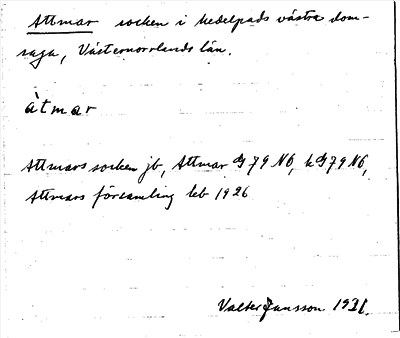 Attmar socken i Medelpads västra dom-
saga, Västernorrlands län.
àtmar
Attmars socken jb, Attmar GJ 79 NÖ, k GJ 79 NÖ,
Attmars församling lvb 1926
Valter Jansson 1931.